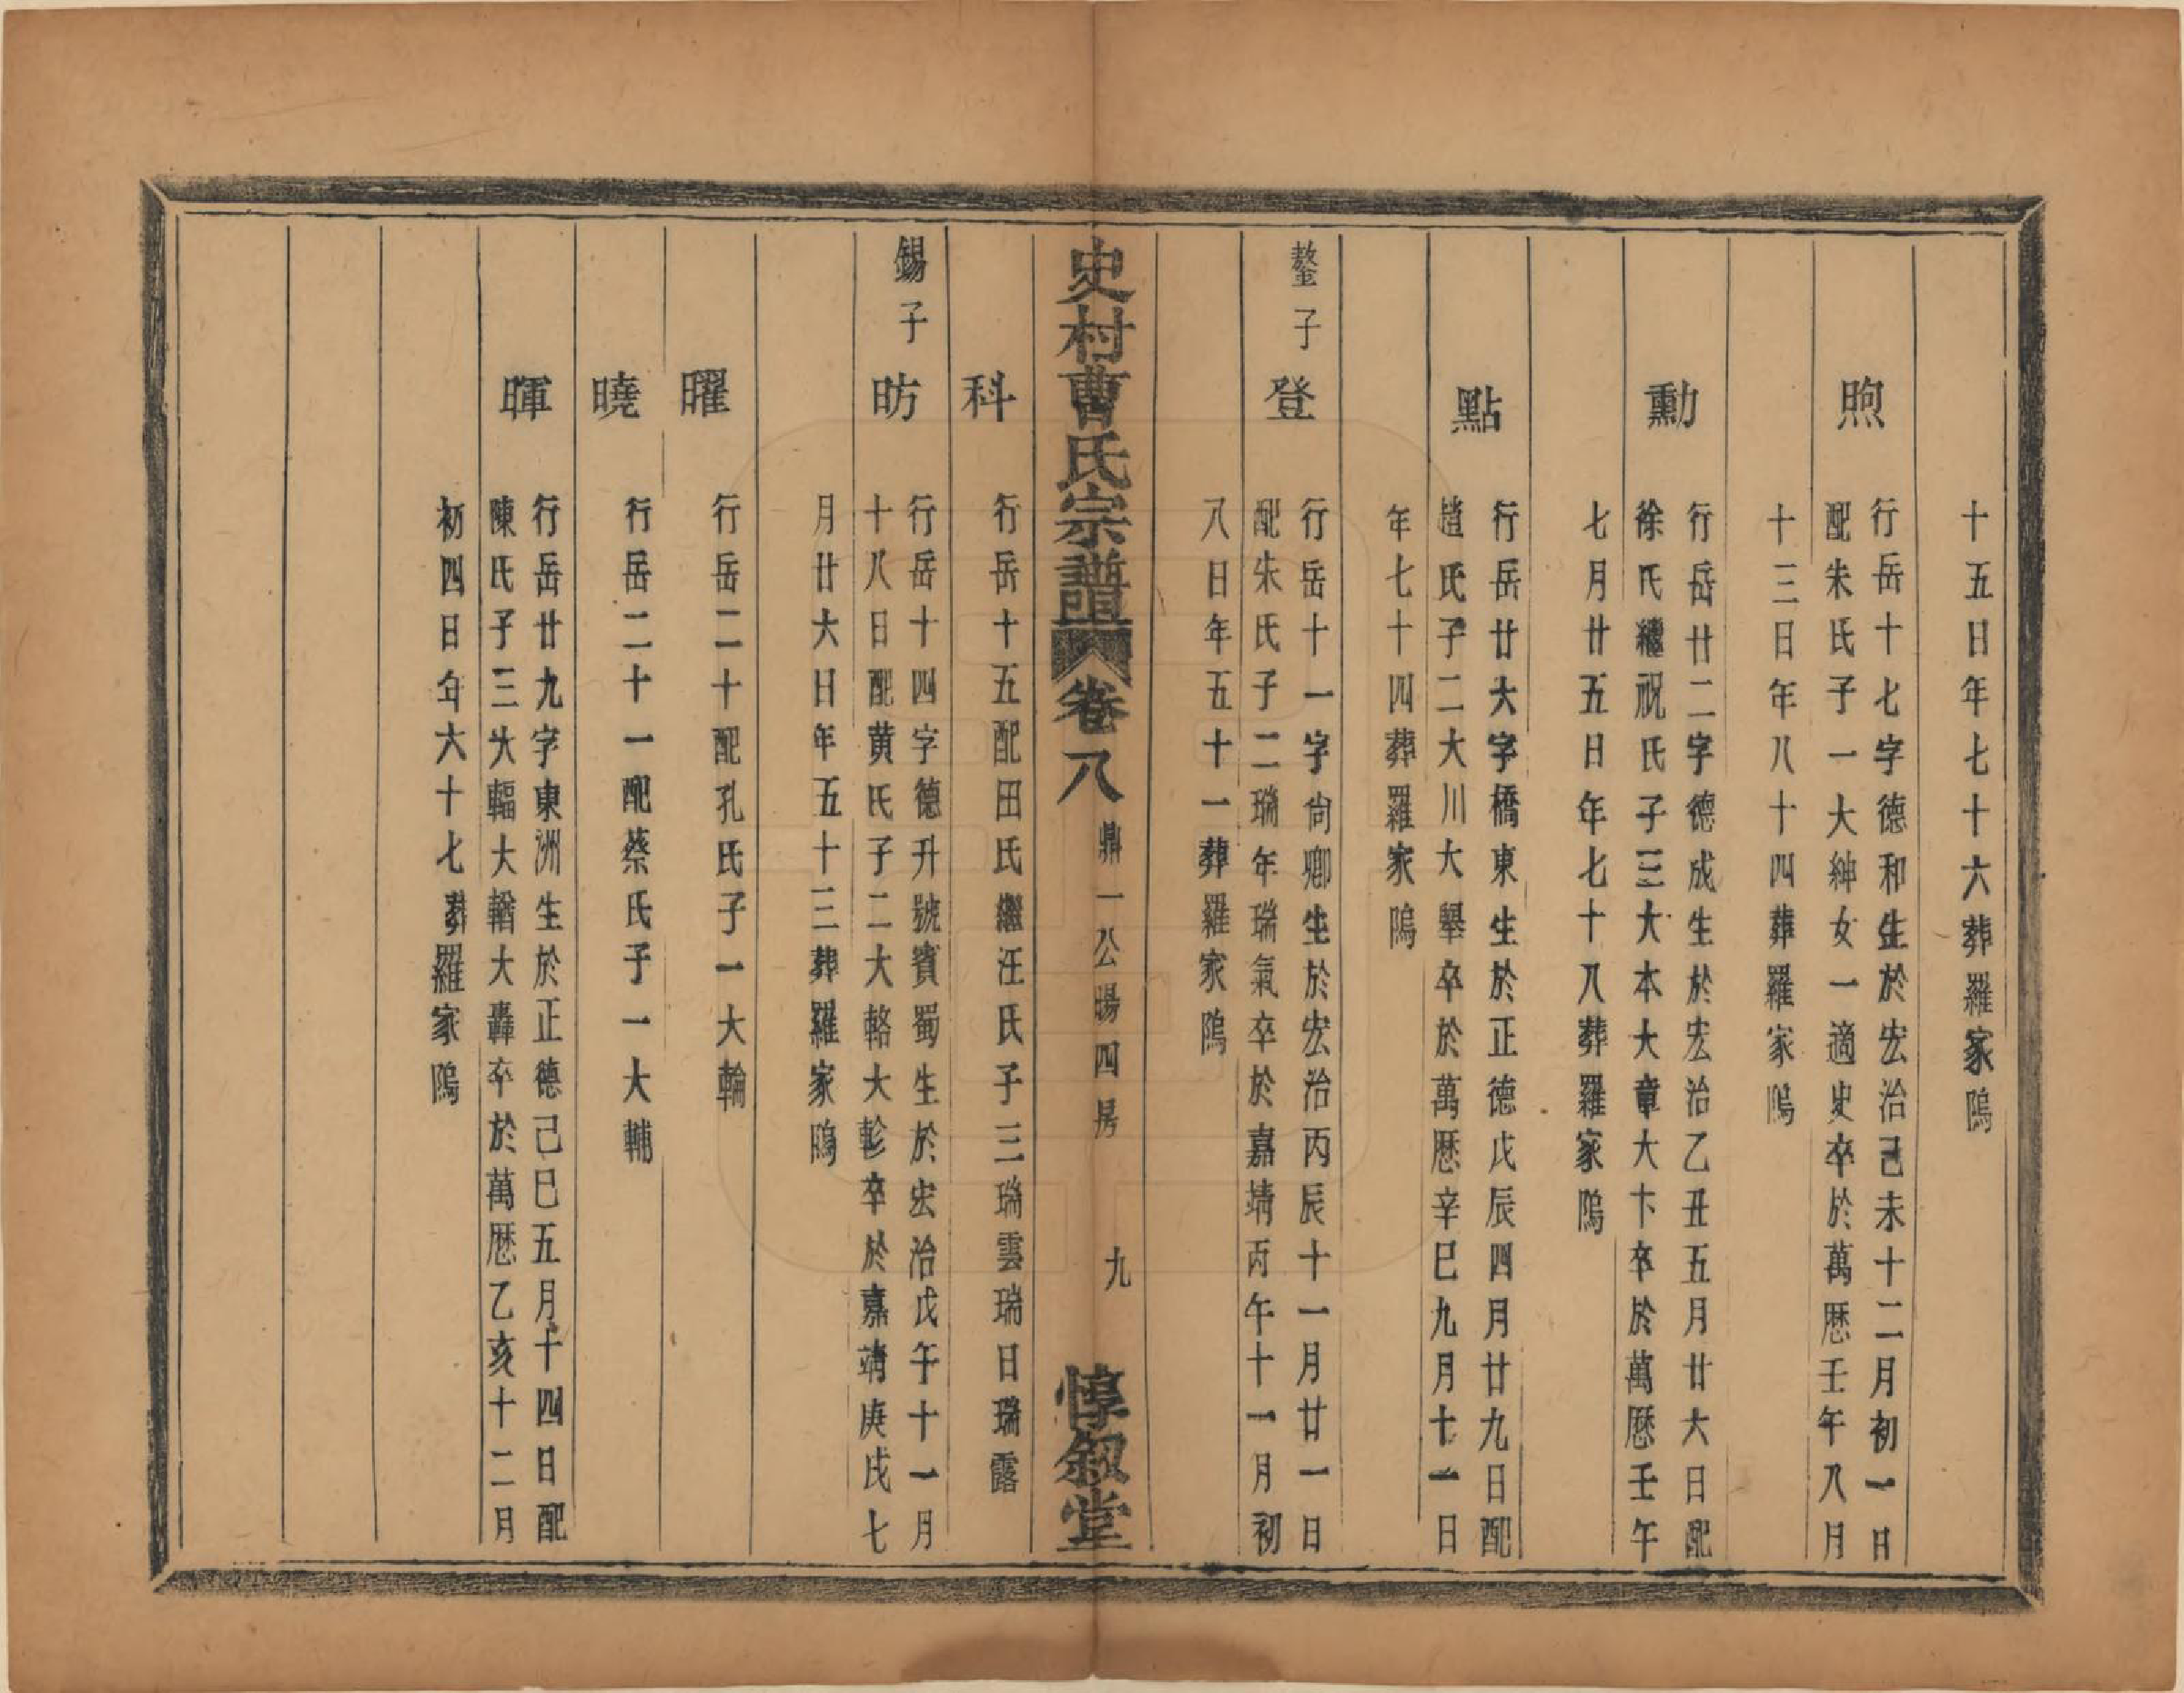 十五日年七十六葬羅家隖
煦
行岳十七字德和生於宏治己未十二月初一日
配朱氏子一大紳女一適史卒於萬歷壬午八月
十三日年八十四葬羅家隖
勳
行岳廿二字德成生於宏治乙丑五月廿六日配
徐氏繼祝氏子三大本大章大卞卒於萬歷壬午
七月廿五日年七十八葬羅家隖
點
行岳廿六字橋東生於正德戊辰四月廿九日配
趙氏子二大川大舉卒於萬歷辛巳九月十一日
年七十四葬羅家隖
鏊子
登
行岳十一字尙卿生於宏治丙辰十一月廿一日
配朱氏子二瑞年瑞氣卒於嘉靖丙午十一月初
八日年五十一葬羅家隖
史村曹氏宗譜 卷八 鼎一公暘四房 九 惇叙堂
科
行岳十五配田氏繼汪氏子三瑞雲瑞日瑞露
錫子
昉
行岳十四字德升號賓蜀生於宏治戊午十一月
十八日配黄氏子二大輅大軫卒於嘉靖庚戌七
月廿六日年五十三葬羅家隖
曜
行岳二十配孔氏子一大輪
曉
行岳二十一配蔡氏子一大輔
暉
行岳廿九字東洲生於正德己巳五月十四日配
陳氏子三大輻大輶大轟卒於萬歷乙亥十二月
初四日年六十七葬羅家隖